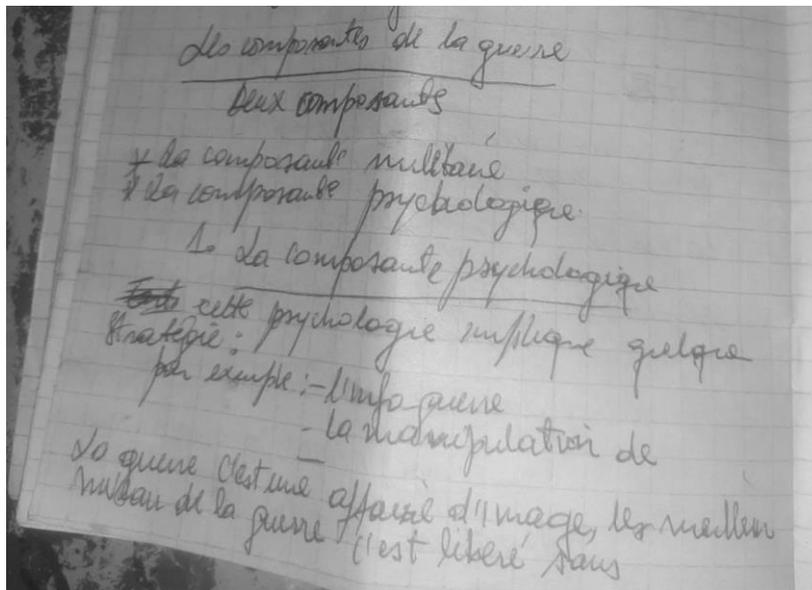 Les composantes de la guerre
Deux composants
* La composante militaire
* La composante psychologique.
1. La composante psychologique
cette psychologie implique quelque
stratégie :
par exemple : - l'info guerre
- la manipulation de
La guerre c'est une affaire d'image, les meilleu
niveau de la guerre c'est libéré sans